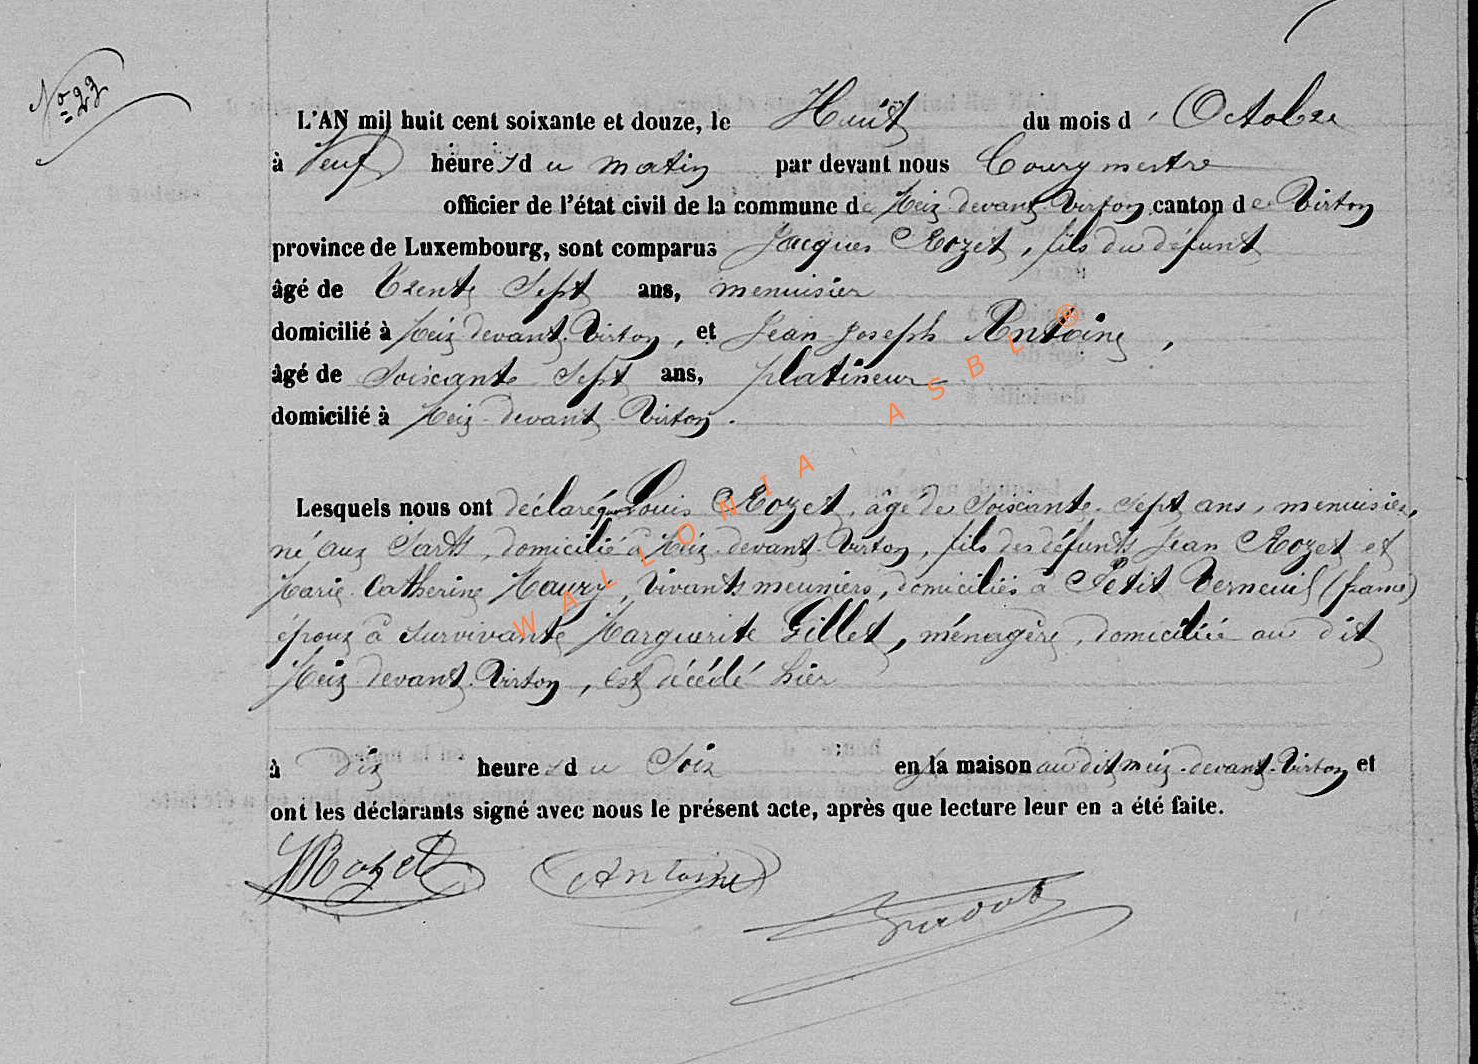 N° 23
L'AN mil huit cent soixante et douze, le Huit du mois d' Octobre
à Neuf heures du matin par devant nous Bourgmestre
officier de l'état civil de la commune de Meix-devant-Virton, canton de Virton
province de Luxembourg, sont comparus Jacques Rozet, fils du défunt
âgé de Trente Sept ans, menuisier
domicilié à Meix-devant-Virton, et Jean-Joseph Antoine,
âgé de Soixante Sept ans, platineur
domicilié à Meix-devant-Virton.
Lesquels nous ont déclaré que Louis Rozet, âgé de Soixante-Sept ans, menuisier,
né aux Sarts, domicilié à Meix-devant-Virton, fils des défunts Jean Rozet et
Marie-Catherine Maury, vivants meuniers, domiciliés à Petit Verneuil (france)
époux à survivante Marguerite Gillet, ménagère, domiciliée au dit
Meix-devant-Virton, est décédé hier
à Dix heures du Soir en la maison au dit meix-devant-Virton et
ont les déclarants signé avec nous le présent acte, après que lecture leur en a été faite.
JRozet Antoine
WALLONIA ASBL ®